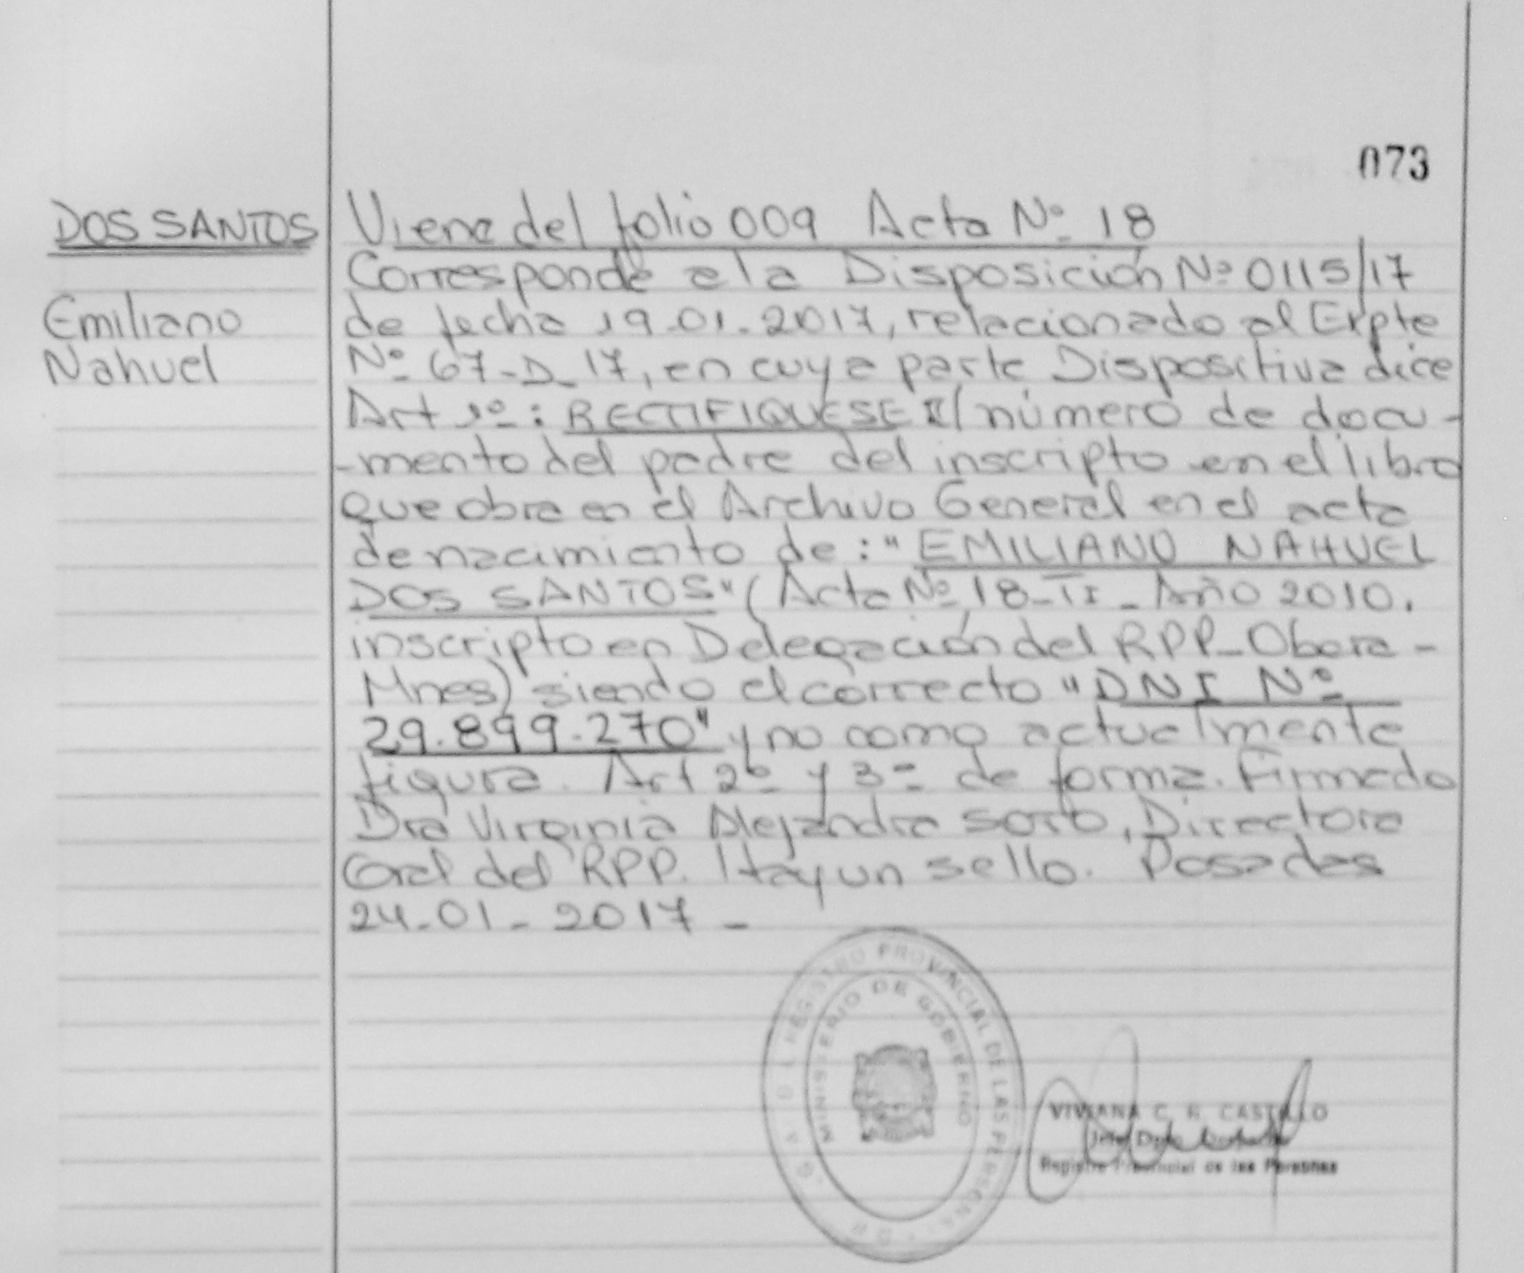 073
DOS SANTOS
Emiliano
Nahuel
Viene del folio 009 Acta Nº 18
Corresponde a la Disposición Nº 0115/17
de fecha 19.01.2017, relacionado al Expte
Nº 67-D-17, en cuya parte Dispositiva dice
Art 1º: RECTIFIQUESE El número de docu-
-mento del padre del inscripto en el libro
que obra en el Archivo General en el acta
de nacimiento de: "EMILIANO NAHUEL
DOS SANTOS" (Acta Nº 18-TI- Año 2010.
inscripto en Delegación del RPP-Obera-
Mnes) siendo el correcto "DNI Nº
29.899.270" y no como actualmente
figura. Art 2º y 3º de forma. Firmado
Dra Virginia Alejandra Soto, Directora
Gral del RPP. Hay un sello. Posadas
24-01-2017-
REGISTRO PROVINCIAL DE LAS PERSONAS
MINISTERIO DE GOBIERNO
VIVIANA C. R. CASTILLO
Registro Provincial de las Personas